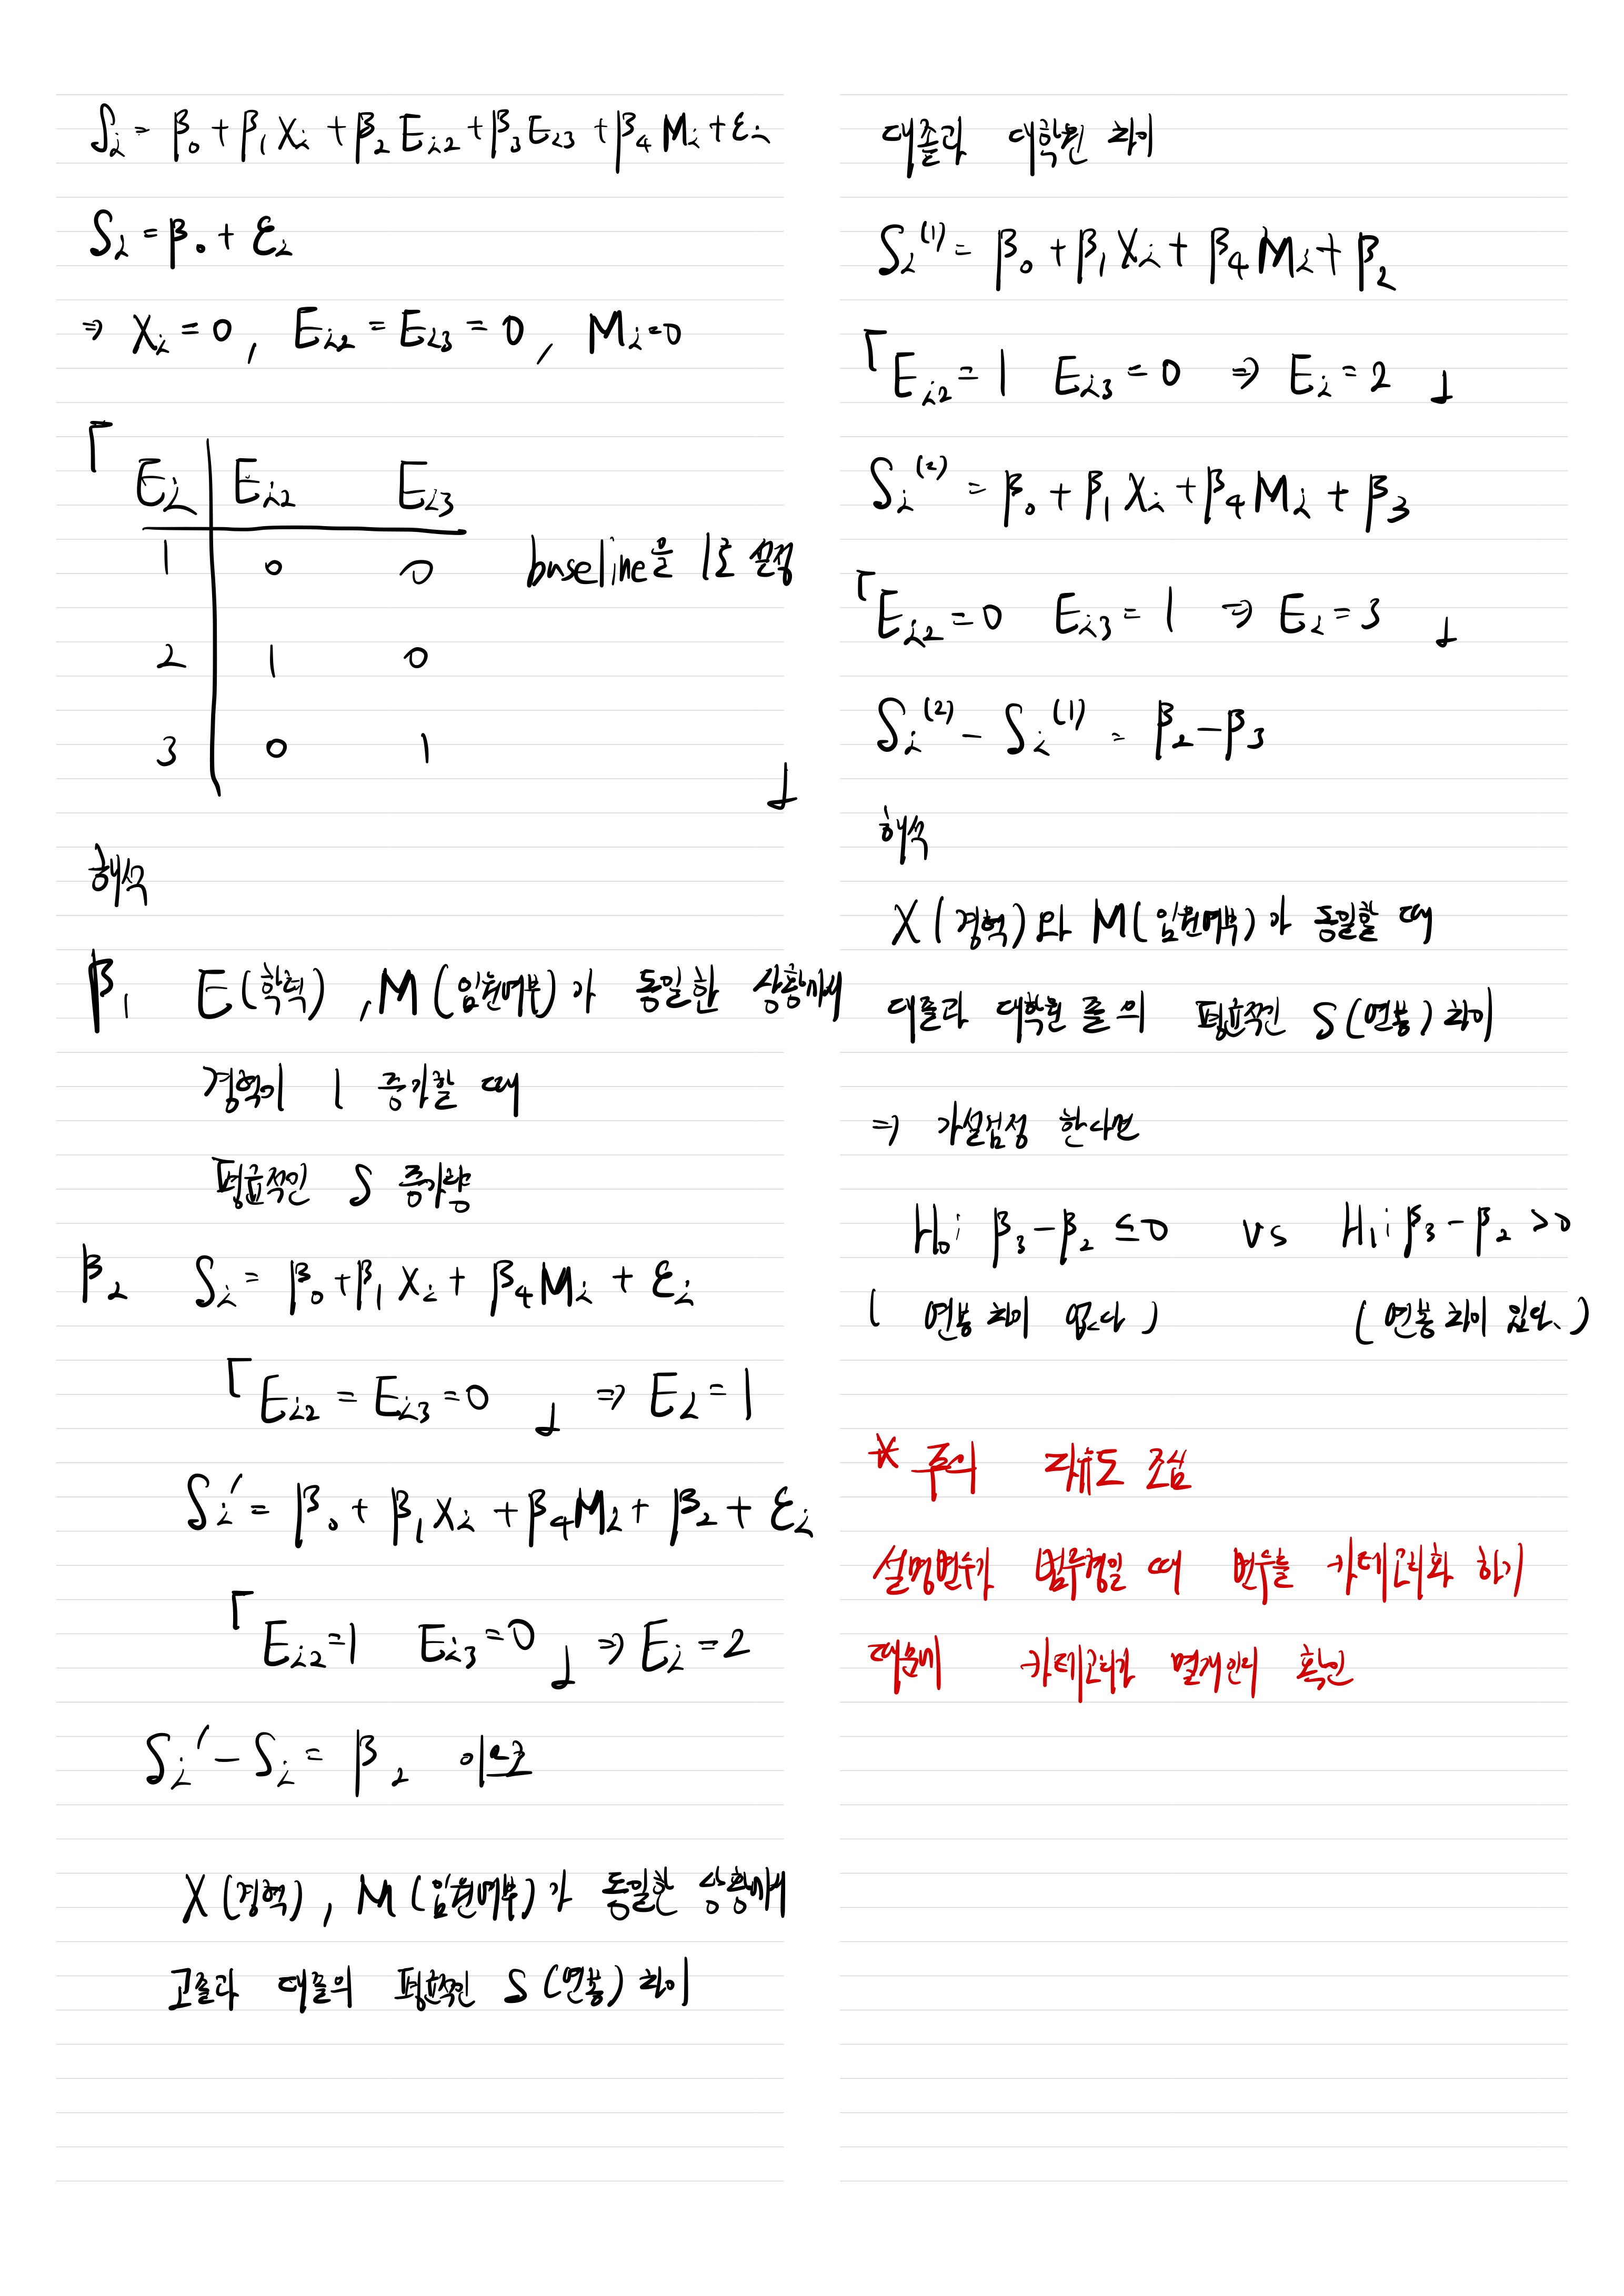 S_i = β_0 + β_1 X_i + β_2 E_i2 + β_3 E_i3 + β_4 M_i + ε_i
S_i = β_0 + ε_i
⇒ X_i = 0, E_i2 = E_i3 = 0, M_i = 0
「 E_i | E_i2 E_i3
1 0 0 baseline을 1로 설정
2 1 0
3 0 1 」
해석
β_1 E(학력), M(임원여부)가 동일한 상황에서
경력이 1 증가할 때
평균적인 S 증가량
β_2 S_i = β_0 + β_1 X_i + β_4 M_i + ε_i
「 E_i2 = E_i3 = 0 」 ⇒ E_i = 1
S_i' = β_0 + β_1 X_i + β_4 M_i + β_2 + ε_i
「 E_i2 = 1 E_i3 = 0 」 ⇒ E_i = 2
S_i' - S_i = β_2 이므로
X(경력), M(임원여부)가 동일한 상황에서
고졸과 대졸의 평균적인 S(연봉) 차이
대졸과 대학원 차이
S_i^(1) = β_0 + β_1 X_i + β_4 M_i + β_2
「 E_i2 = 1 E_i3 = 0 ⇒ E_i = 2 」
S_i^(2) = β_0 + β_1 X_i + β_4 M_i + β_3
「 E_i2 = 0 E_i3 = 1 ⇒ E_i = 3 」
S_i^(2) - S_i^(1) = β_2 - β_3
해석
X(경력)와 M(임원여부)가 동일할 때
대졸과 대학원 졸의 평균적인 S(연봉) 차이
⇒ 가설검정 한다면
H_0 : β_3 - β_2 ≤ 0 vs H_1 : β_3 - β_2 > 0
( 연봉 차이 없다 ) ( 연봉 차이 있다. )
* 주의 자유도 조심
설명변수가 범주형일 때 변수를 카테고리화 하기
때문에 카테고리가 몇개인지 확인